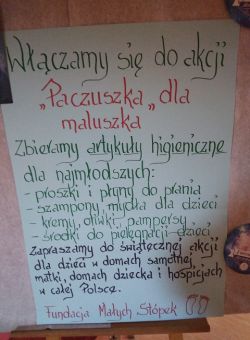 Włączamy się do akcji
„Paczuszka„ dla
maluszka
Zbieramy artykuły higieniczne
dla najmłodszych:
- proszki i płyny do prania
- szampony, mydła dla dzieci
- kremy, oliwki, pampersy
- środki do pielęgnacji dzieci
Zapraszamy do świątecznej akcji
dla dzieci w domach samotnej
matki, domach dziecka i hospicjach
w całej Polsce.
Fundacja Małych Stópek